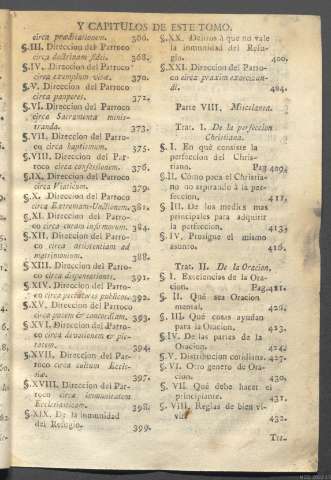 Y CAPITULOS DE ESTE TOMO.
circa prædicationem. 366.
§.III. Direccion del Parroco
circa doctrinam fidei. 368.
§.IV. Direccion del Parroco
circa exemplum vitæ. 370.
§.V. Direccion del Parroco
circa pauperes. 372.
§.VI. Direccion del Parroco
circa Sacramenta minis-
tranda. 373.
§.VII. Direccion del Parro-
co circa baptismum. 375.
§.VIII. Direccion del Par-
roco circa confessionem. 376.
§.IX. Direccion del Parroco
circa Viaticum. 379.
§.X. Direccion del Parroco
circa Extremam-Unctionem. 381.
§.XI. Direccion del Parro-
co circa curam infirmorum. 384.
§.XII. Direccion del Parro-
co circa assistentiam ad
matrimonium. 388.
§.XIII. Direccion del Parro-
co circa dispensationes. 391.
§.XIV. Direccion del Parro-
co circa peccatores publicos. 392.
§.XV. Direccion del Parroco
circa pacem & concordiam. 393.
§.XVI. Direccion del Parro-
co circa devotionem & pie-
tatem. 394.
§.XVII. Direccion del Par-
roco circa cultum Eccle-
siæ. 397.
§.XVIII. Direccion del Par-
roco circa immunitatem
Ecclesiasticam. 398.
§.XIX. De la inmunidad
del Refugio. 399.
§.XX. Delitos à que no vale
la inmunidad del Refu-
gio. 400.
§.XXI. Direccion del Parro-
co circa praxim exorcizan-
di. 404.
Parte VIII. Miscelanea.
Trat. I. De la perfeccion
Christiana.
§. I. En què consiste la
perfeccion del Chris-
tiano. Pag. 409.
§.II. Còmo peca el Christia-
no no aspirando à la per-
feccion. 411.
§. III. De los medios mas
principales para adquirir
la perfeccion. 413.
§. IV. Prosigue el mismo
asunto. 416.
Trat. II. De la Oracion.
§. I. Excelencias de la Ora-
cion. Pag. 421.
§. II. Què sea Oracion
mental. 422.
§. III. Què cosas ayudan
para la Oracion. 423.
§.IV. De las partes de la
Oracion. 424.
§.V. Distribucion cotidiana. 427.
§. VI. Otro genero de Ora-
cion. 430.
§. VII. Què debe hacer el
principiante. 431.
§. VIII. Reglas de bien vi-
vir. 432.
Tra-